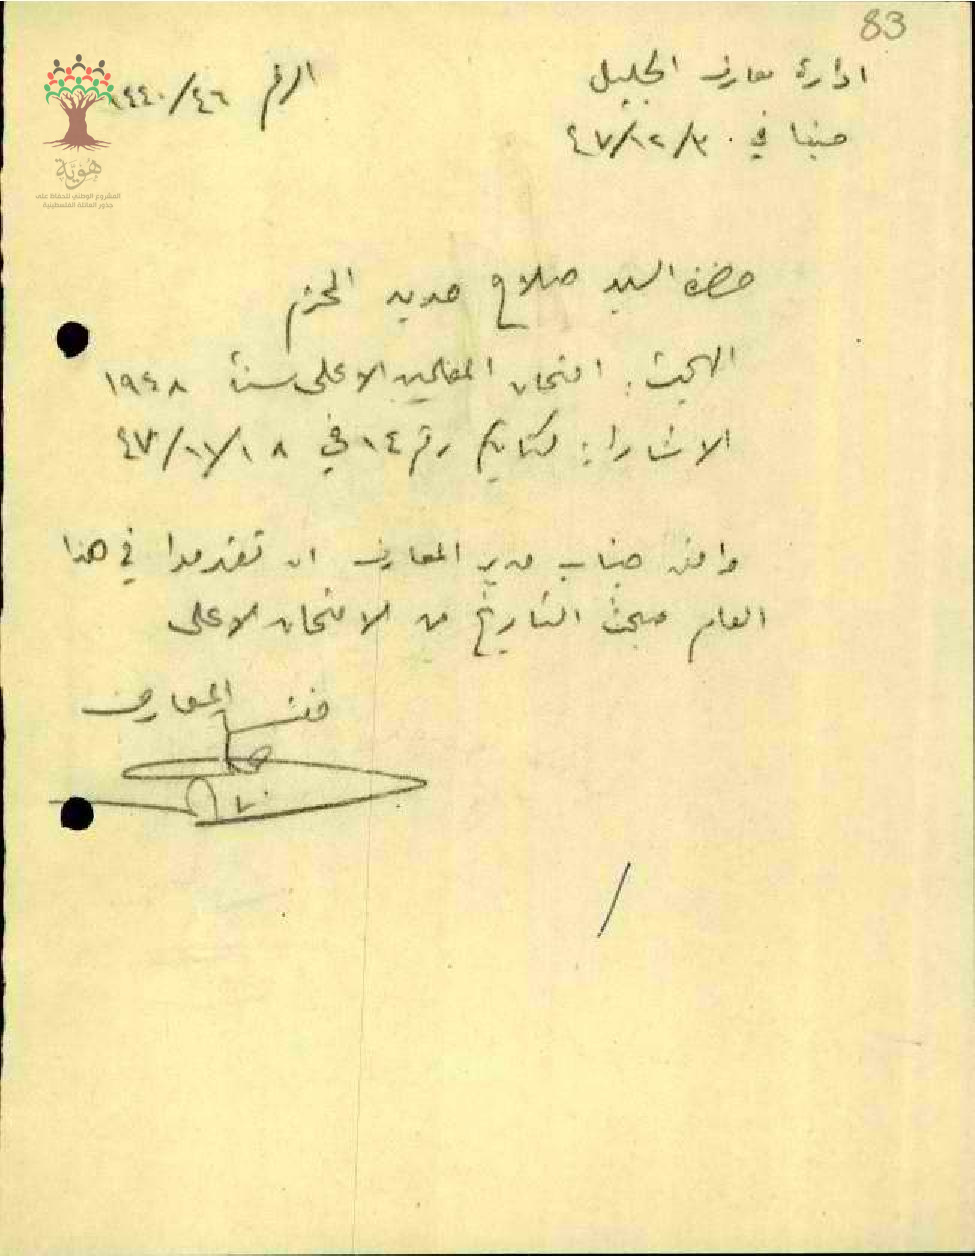 83
ادارة معارف الجليل
الرقم ١٤٤٠/٤٦
حيفا في ٤٧/١٢/٣٠
هُوِيَّة
المشروع الوطني للحفاظ على
جذور العائلة الفلسطينية
حضرة السيد صلاح حديد المحترم
البحث: امتحان المعلمين الاعلى سنة ١٩٤٨
الاشارة: كتابكم رقم ١٤ في ٤٧/١١/١٨
وافق جناب مدير المعارف ان تقدموا في هذا
العام مبحث التاريخ من الامتحان الاعلى
مفتش المعارف